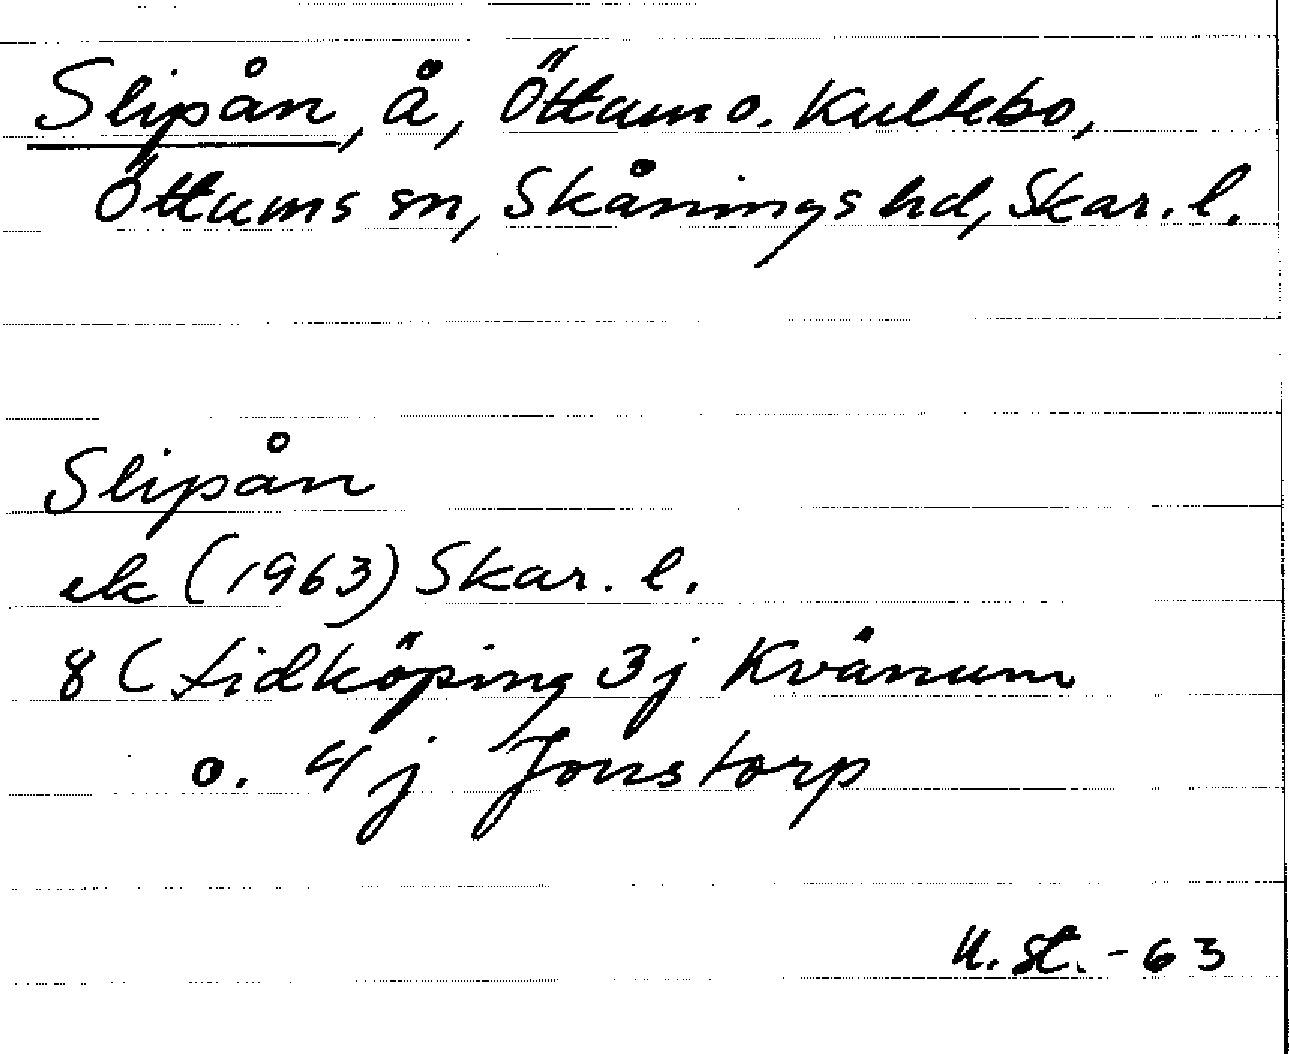 Slipån, å, Öttum o. Kultebo,
Öttums sn, Skånings hd, Skar. l.
Slipån
ek (1963) Skar. l.
8 C Lidköping 3j Kvånum
o. 4j Jonstorp
U. St. -63